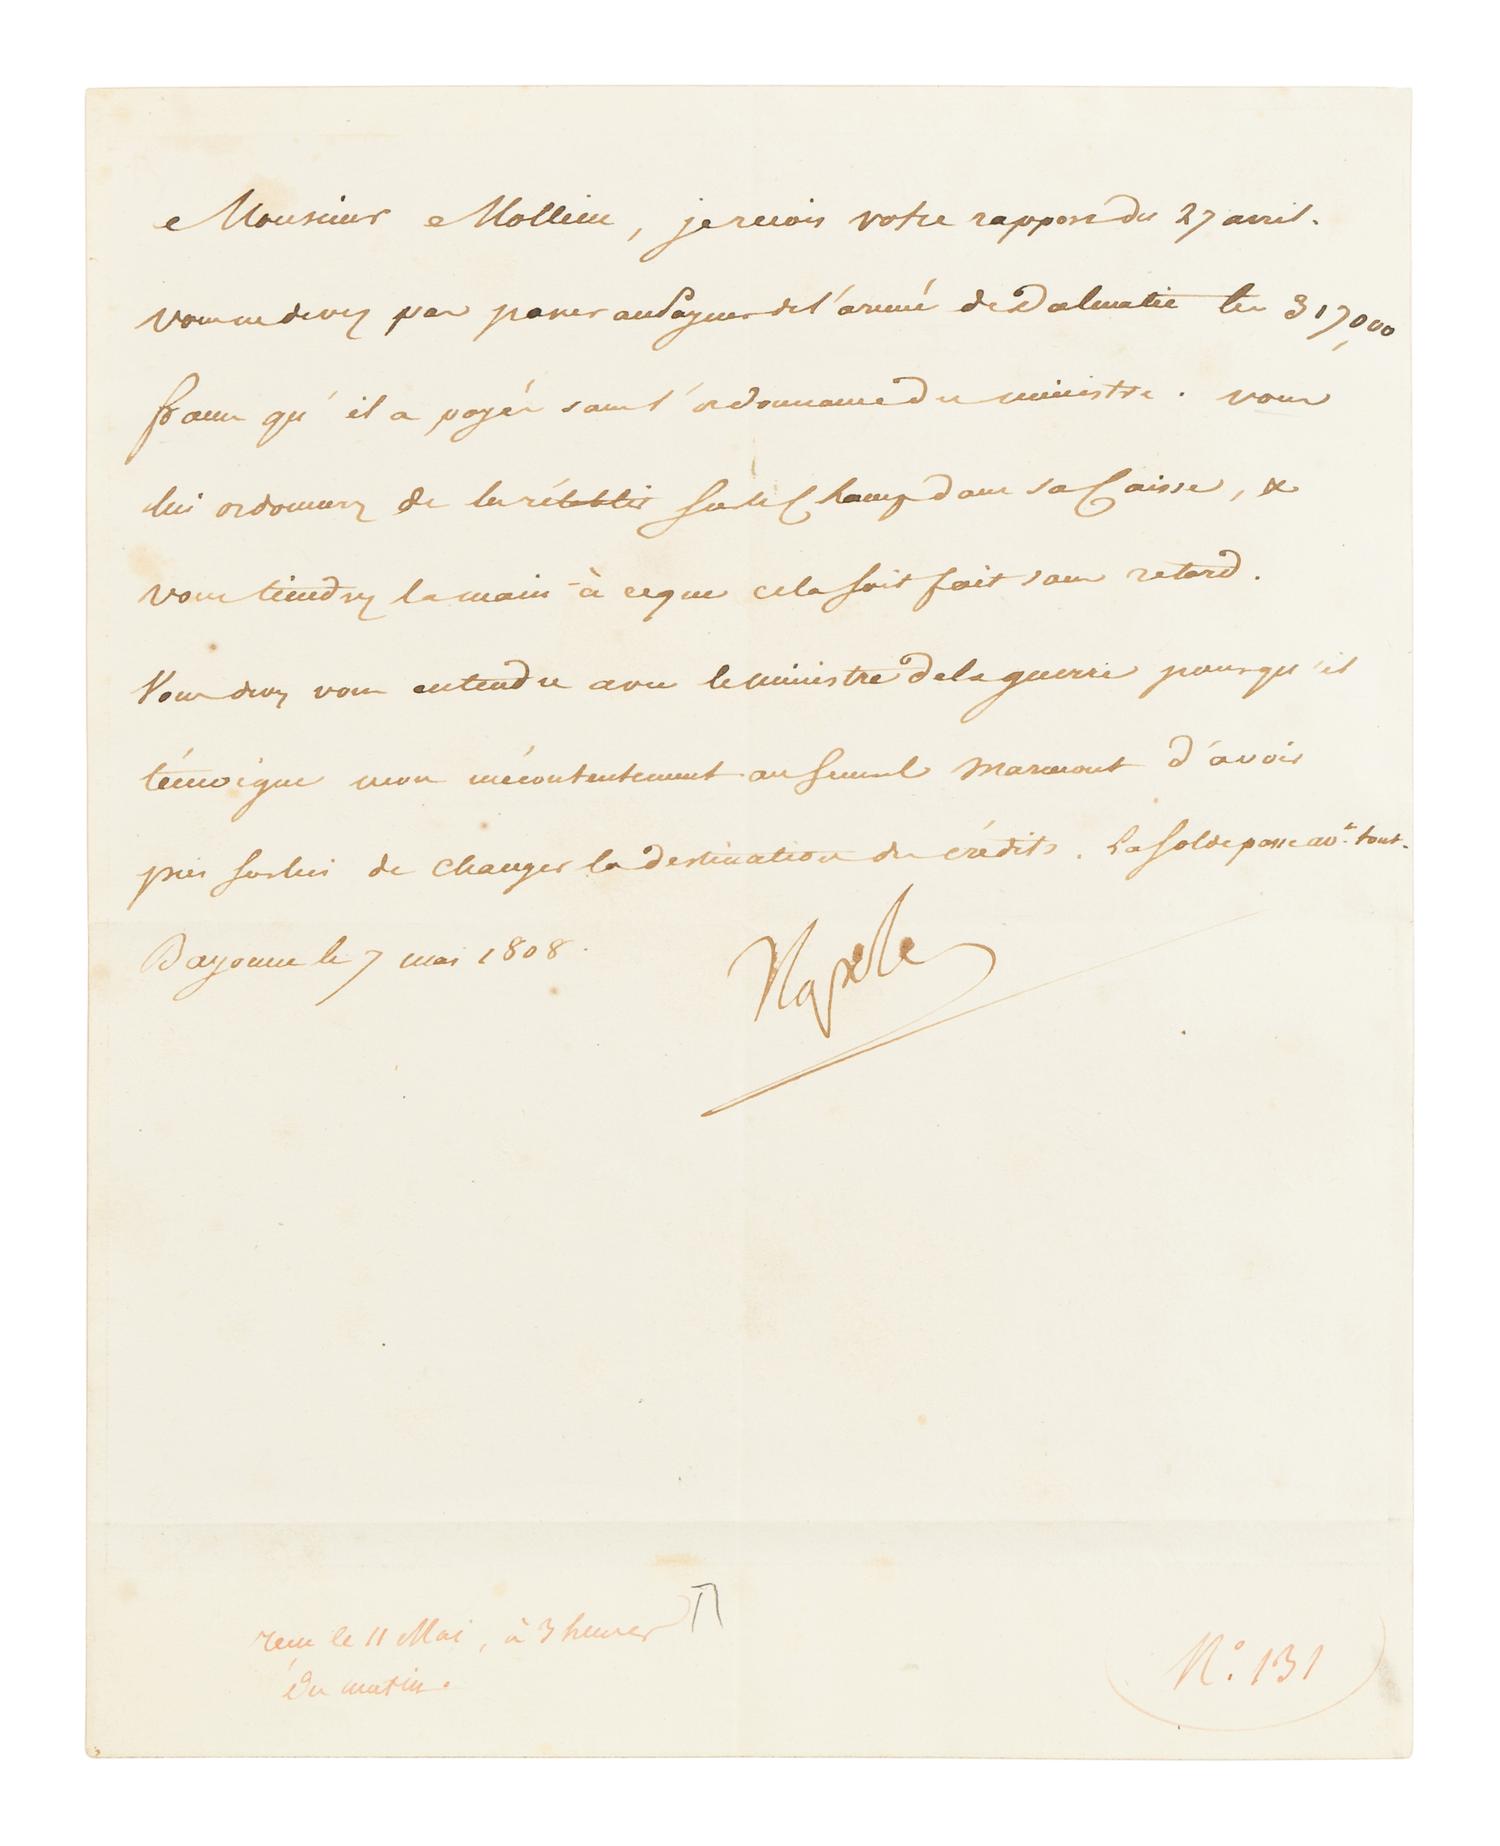 Monsieur Mollien, je reçois votre rapport du 27 avril.
vous ne devez pas passer au Payeur de l'armée de Dalmatie les 317,000
francs qu'il a payés sans l'ordonnance du ministre. vous
lui ordonnerez de les rétablir sur le Champ dans sa Caisse, &
vous tiendrez la main à ce que cela soit fait sans retard.
Vous devez vous entendre avec le ministre de la guerre pour qu'il
témoigne mon mécontentement au General Marmont d'avoir
pris sur lui de changer la destination des crédits. La Solde passe avt. tout.
Bayonne le 7 mai 1808.
Napole
reçu le 11 Mai, à 3 heures
du matin.
N.° 131